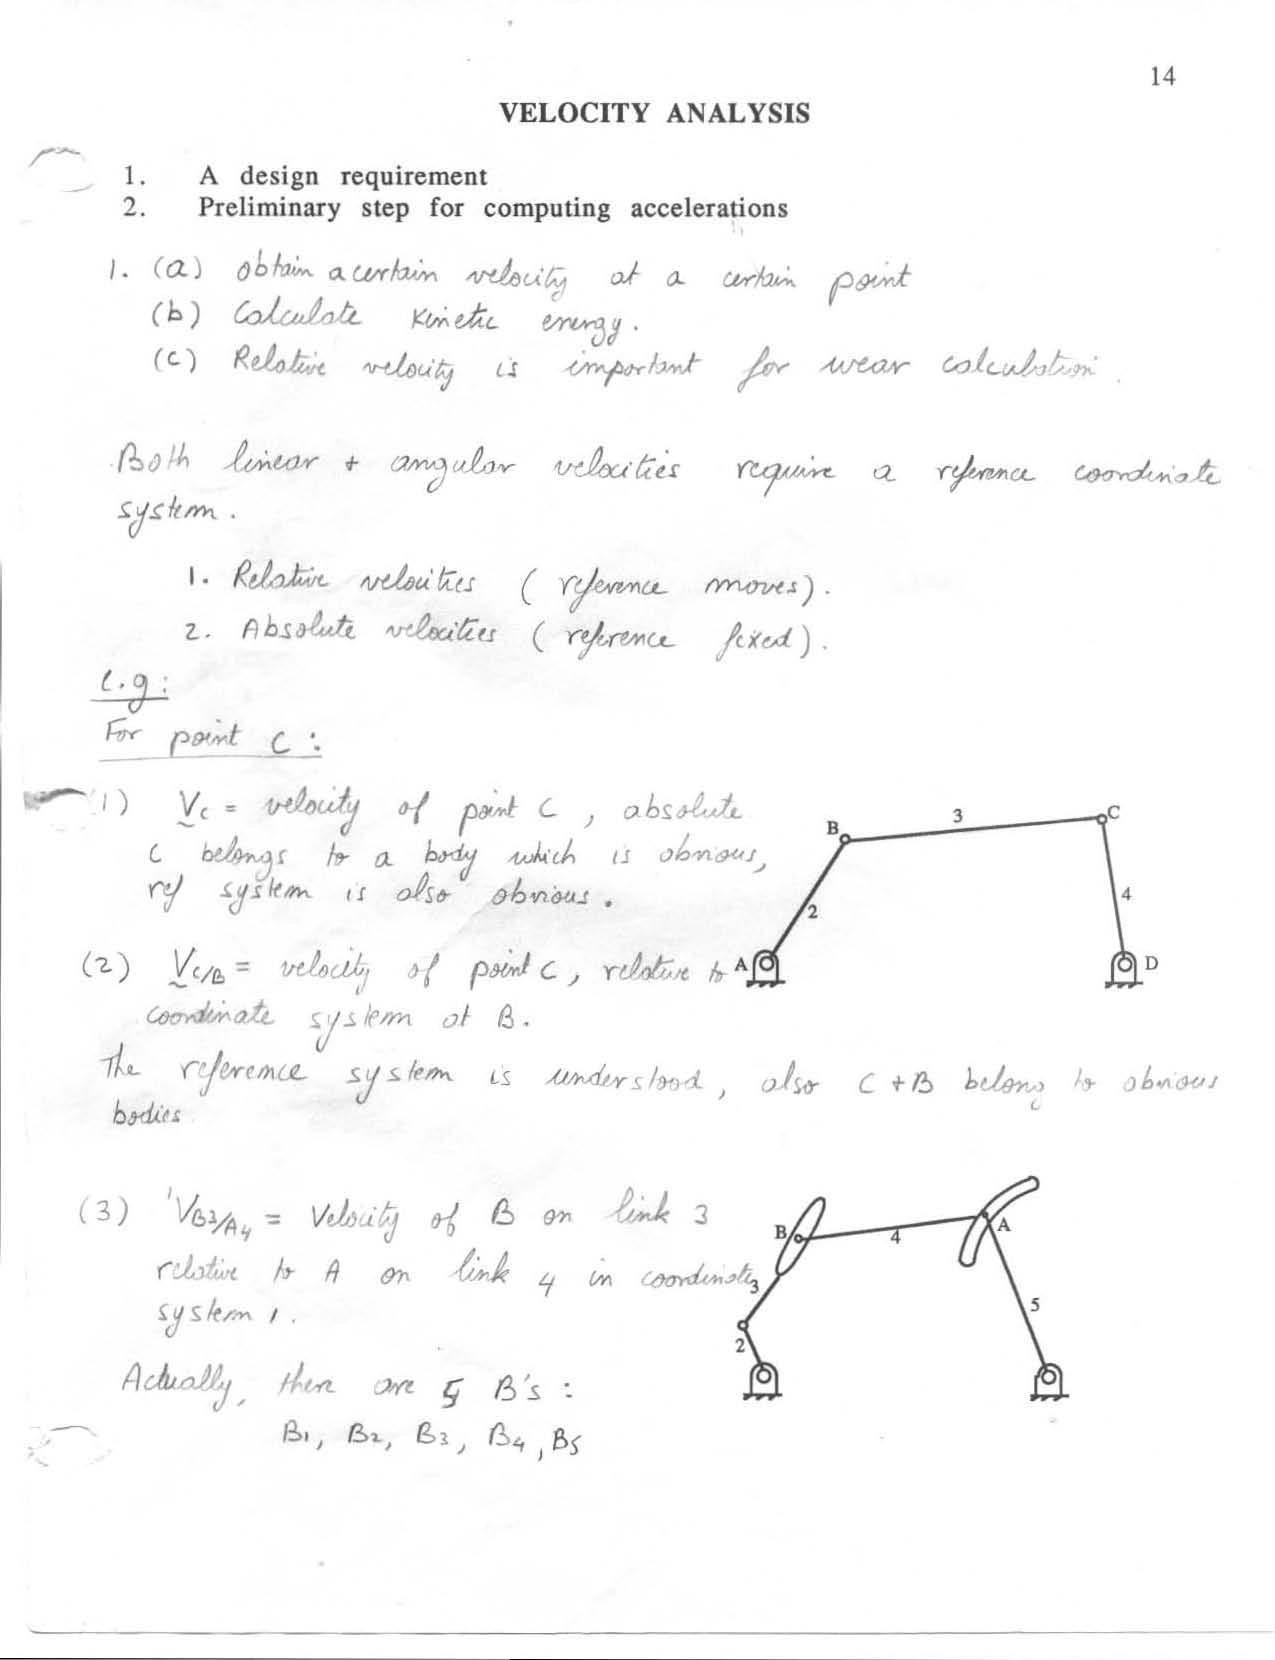 14
VELOCITY ANALYSIS
1. A design requirement
2. Preliminary step for computing accelerations
1. (a) obtain a certain velocity at a certain point
(b) Calculate Kinetic energy.
(c) Relative velocity is important for wear calculation.
Both linear + angular velocities require a reference coordinate
system.
1. Relative velocities ( reference moves).
2. Absolute velocities ( reference fixed).
e.g:
For point C :
(1) V_C = velocity of point C, absolute
C belongs to a body which is obvious,
ref system is also obvious.
B 3 C
2 4
A D
(2) V_C/B = velocity of point C, relative to
coordinate system at B.
The reference system is understood, also C + B belong to obvious
bodies
(3) ¹V_B3/A4 = Velocity of B on link 3
relative to A on link 4 in coordinate
system 1.
B 4 A
3 5
2
Actually, there are 5 B's :
B1, B2, B3, B4, B5